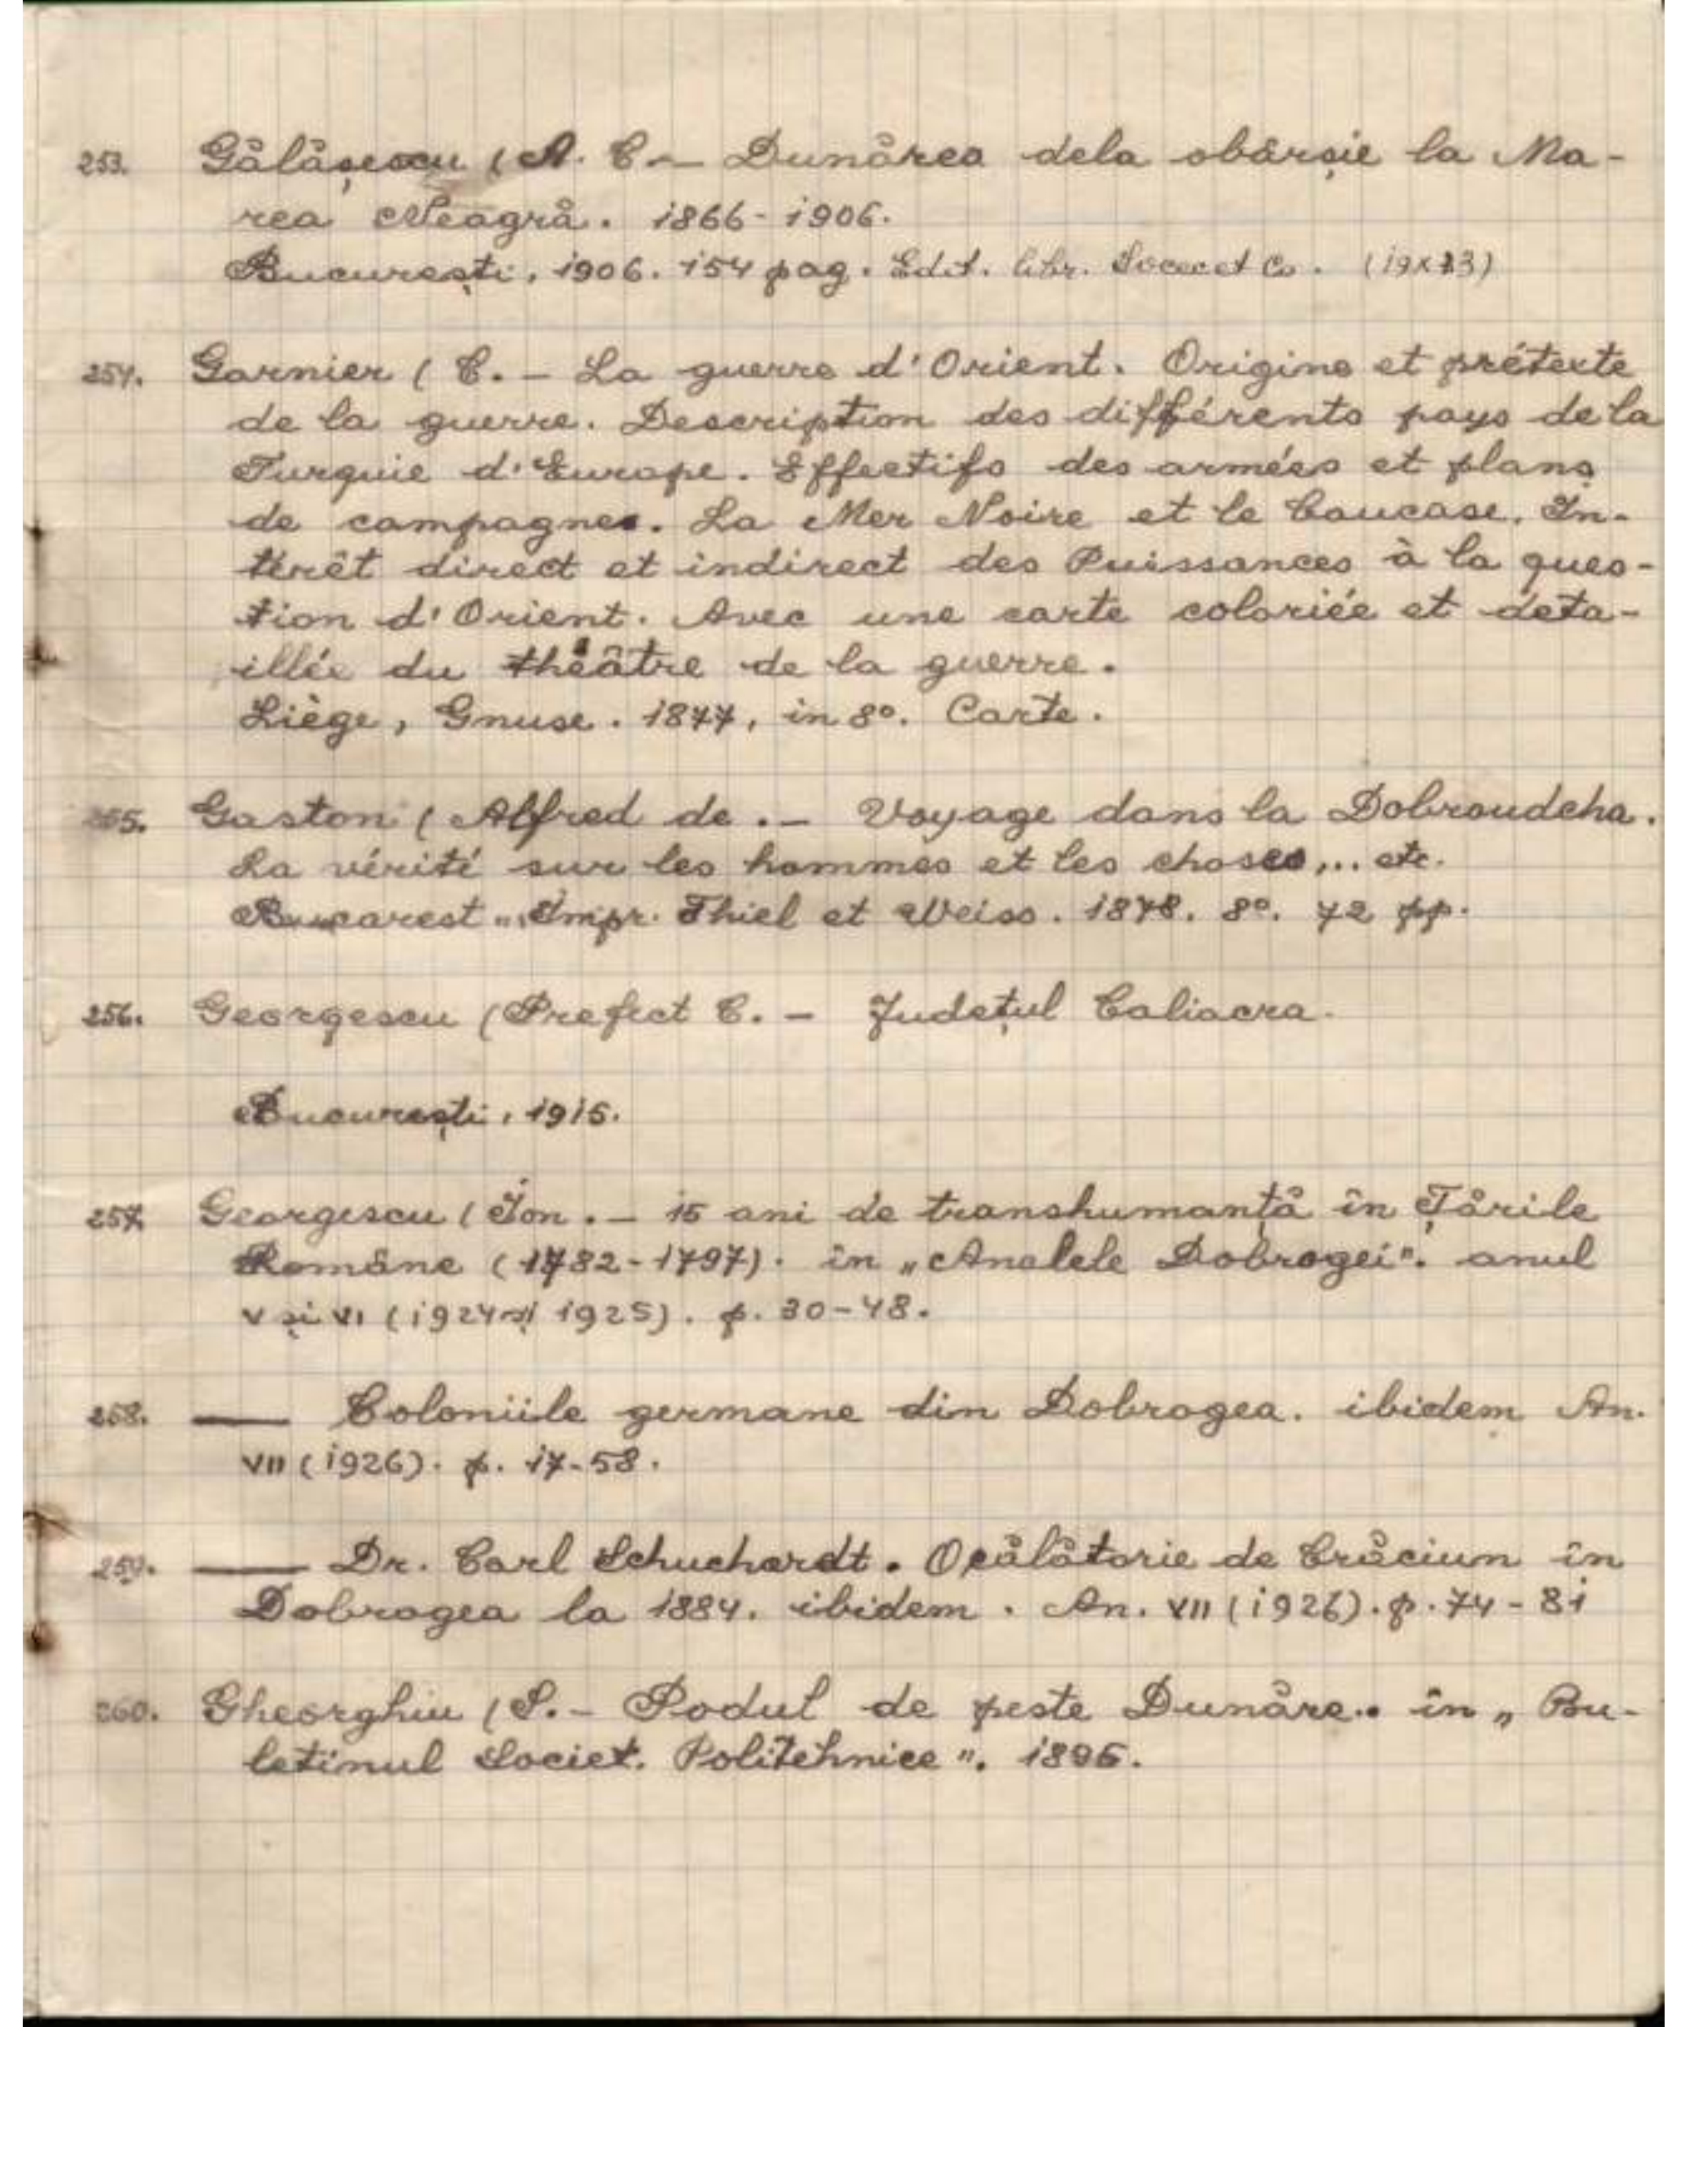 253. Gălășescu (A. C. – Dunărea dela obârșie la Ma-
rea Neagră. 1866 - 1906.
București, 1906. 154 pag. Edit. libr. Socec et Co. (19x13)
254. Garnier (C. – La guerre d'Orient. Origine et prétexte
de la guerre. Description des différents pays de la
Turquie d'Europe. Effectifs des armées et plans
de campagnes. La Mer Noire et le Caucase. In-
térêt direct et indirect des Puissances à la ques-
tion d'Orient. Avec une carte coloriée et deta-
illée du théâtre de la guerre.
Liège, Gnuse. 1877, in 8º. Carte.
255. Gaston (Alfred de. – Voyage dans la Dobroudcha.
La vérité sur les hommes et les choses,... etc.
Bucarest. Impr. Thiel et Weiss. 1878. 8º. 72 pp.
256. Georgescu (Prefect C. – Județul Caliacra.
București, 1915.
257. Georgescu (Ion. – 15 ani de transhumanță în Țările
Române (1782-1797). în „Analele Dobrogei". anul
V și VI (1924 și 1925). p. 30-48.
258. —— Coloniile germane din Dobrogea. ibidem An.
VII (1926). p. 17-58.
259. —— Dr. Carl Schuchardt. O călătorie de Crăciun în
Dobrogea la 1884. ibidem. An. VII (1926). p. 74 - 81
260. Gheorghiu (S. – Podul de peste Dunăre.. în „Bu-
letinul Societ. Politehnice". 1896.